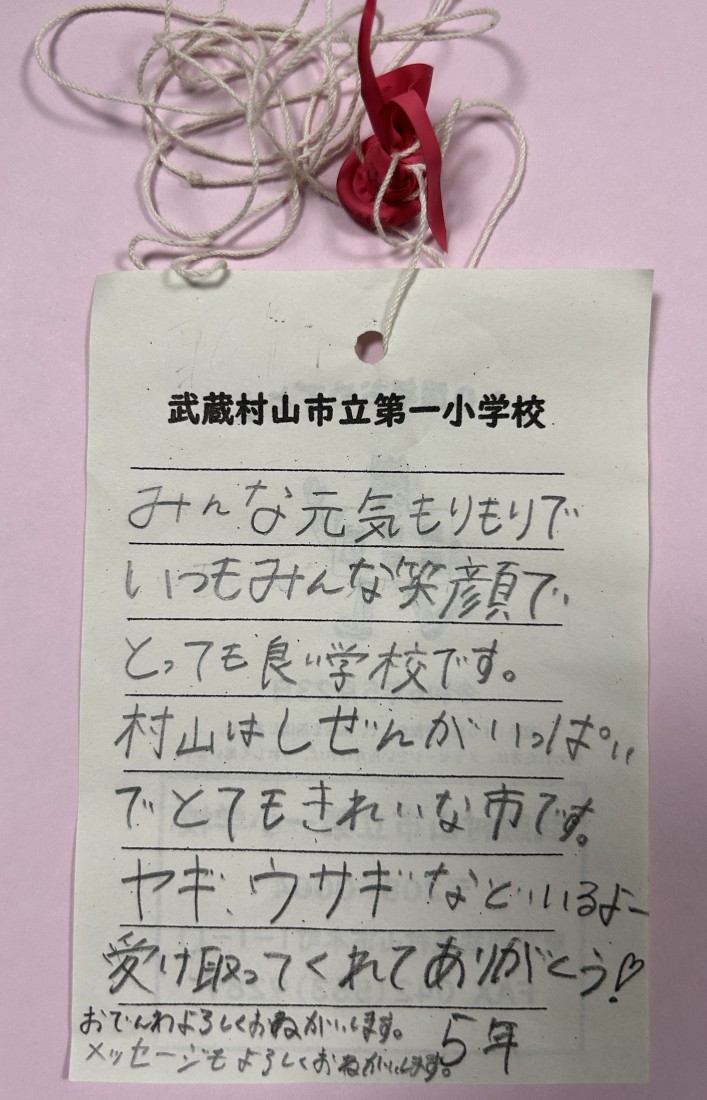 武蔵村山市立第一小学校
みんな元気もりもりで
いつもみんな笑顔で
とっても良い学校です。
村山はしぜんがいっぱい
でとてもきれいな市です。
ヤギ、ウサギなどいるよー
受け取ってくれてありがとう!♡
おでんわよろしくおねがいします。
メッセージもよろしくおねがいします。
5年